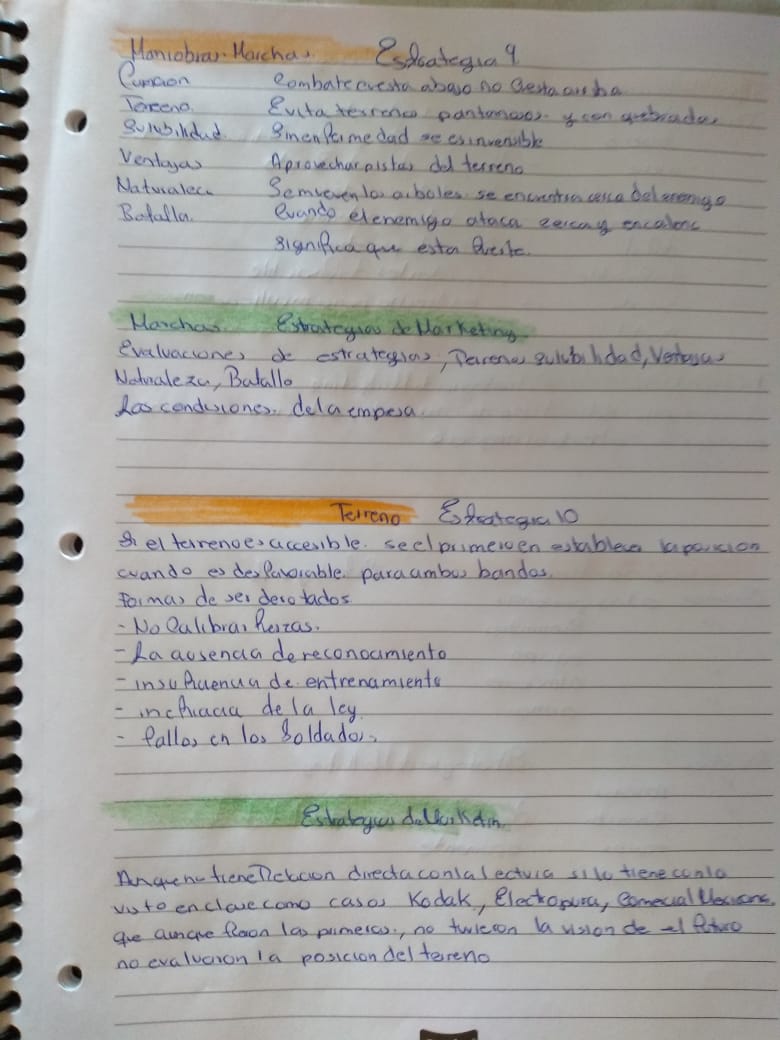 Maniobras Marchas Estrategia 9
Combate cuesta abajo no Cuesta arriba
Terreno. Evita terrenos pantanosos y con quebradas
Sulubilidad. Sin enfermedad se es invensible
Ventajas Aprovechar pistas del terreno
Naturaleza Se mueven los arboles se encuentra cerca del enemigo
Batalla. Cuando el enemigo ataca cerca y en calma
significa que esta fuerte.
Marchas Estrategias de Marketing
Evaluaciones de estrategias, Terreno, sulubilidad, Ventajas
Naturaleza, Batalla
Las condiciones. de la empesa
Terreno Estrategia 10
Si el terreno es accesible. se el primero en establecer la posicion
cuando es desfavorable para ambos bandos.
Formas de ser derotados
- No Calibrar fuerzas.
- La ausencia de reconocimiento
- insuficiencia de entrenamiento
- ineficacia de la ley.
- fallos en los Soldados.
Estrategias de Marketin.
Anque no tiene Relacion directa con la lectura si lo tiene con lo
visto en clase como casos Kodak, Electropura, Comercial Mexicana,
que aunque fueron las primeras, no tuvieron la vision de el futuro
no evaluaron la posicion del terreno